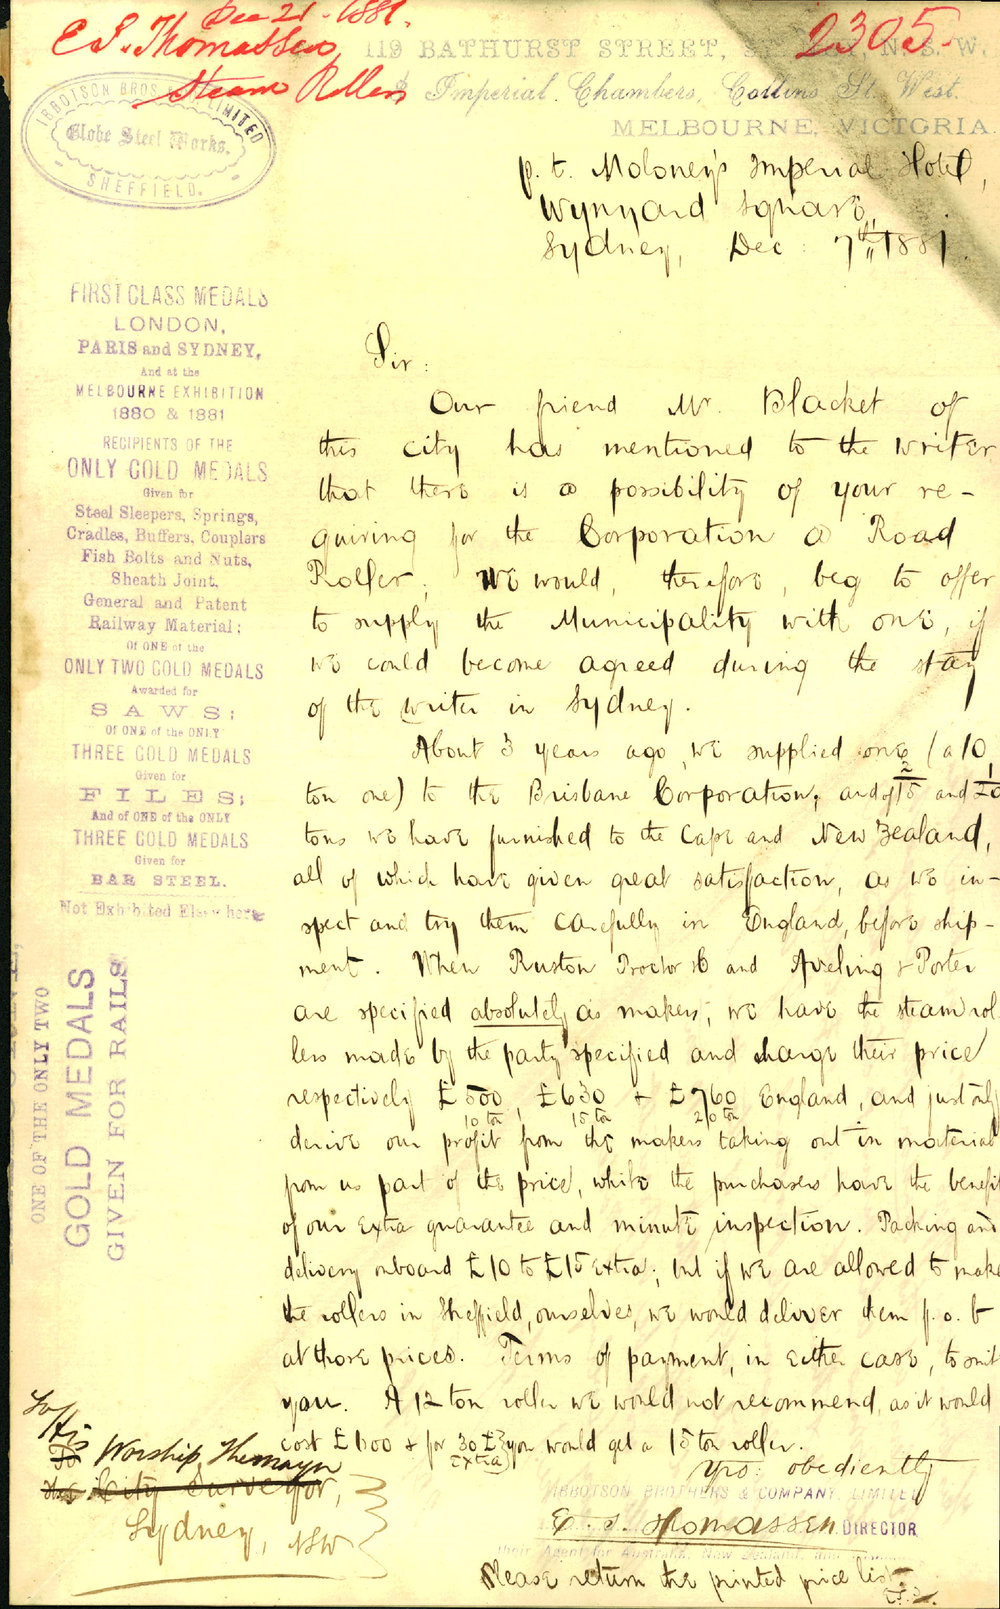 Dec 21. 1881.
E S. Thomassen
Steam Rollers
2305
119 BATHURST STREET, N. S. W.
& Imperial Chambers, Collins St. West.
MELBOURNE, VICTORIA.
IBBOTSON BROS LIMITED
Globe Steel Works.
SHEFFIELD.
p. t. Moloney's Imperial Hotel,
Wynyard Square,
Sydney, Dec: 7th, 1881.
FIRST CLASS MEDALS
LONDON,
PARIS and SYDNEY,
And at the
MELBOURNE EXHIBITION
1880 & 1881
RECIPIENTS OF THE
ONLY GOLD MEDALS
Given for
Steel Sleepers, Springs,
Cradles, Buffers, Couplers
Fish Bolts and Nuts,
Sheath Joint.
General and Patent
Railway Material;
Of ONE of the
ONLY TWO GOLD MEDALS
Awarded for
SAWS;
Of ONE of the ONLY
THREE GOLD MEDALS
Given for
FILES;
And of ONE of the ONLY
THREE GOLD MEDALS
Given for
BAR STEEL.
Not Exhibited Elsewhere
ONE OF THE ONLY TWO
GOLD MEDALS
GIVEN FOR RAILS
Sir:
Our friend Mr. Blacket of
this city has mentioned to the writer
that there is a possibility of your re-
quiring for the Corporation a Road
Roller; We would, therefore, beg to offer
to supply the Municipality with one, if
we could become agreed during the stay
of the writer in Sydney.
About 3 years ago, we supplied one (a 10
ton one) to the Brisbane Corporation, and of 2/15 and 1/20
tons we have furnished to the Cape and New Zealand,
all of which have given great satisfaction, as we in-
spect and try them carefully in England, before ship-
ment. When Ruston Proctor & Co and Aveling & Porter
are specified absolutely as makers, we have the steam rol-
lers made by the party specified and charge their price
respectively £500, £630 & £760 England, and just only
10 ton 15 ton 20 ton
derive our profit from the makers taking out in material
from us part of the price, while the purchasers have the benefit
of our extra guarantee and minute inspection. Packing and
delivery onboard £10 to £15 extra; but if we are allowed to make
the rollers in Sheffield, ourselves, we would deliver them f. o. b
at those prices. Terms of payment, in either case, to suit
you. A 12 ton roller we would not recommend, as it would
cost £600 & for 30 £ extra you would get a 15 ton roller.
Yrs: obediently
IBBOTSON BROTHERS & COMPANY LIMITED
E. S. Thomassen DIRECTOR
their Agent for Australia, New Zealand, and
Please return the printed price list
To
His Worship, The mayor
The City Surveyor,
Sydney, NSW